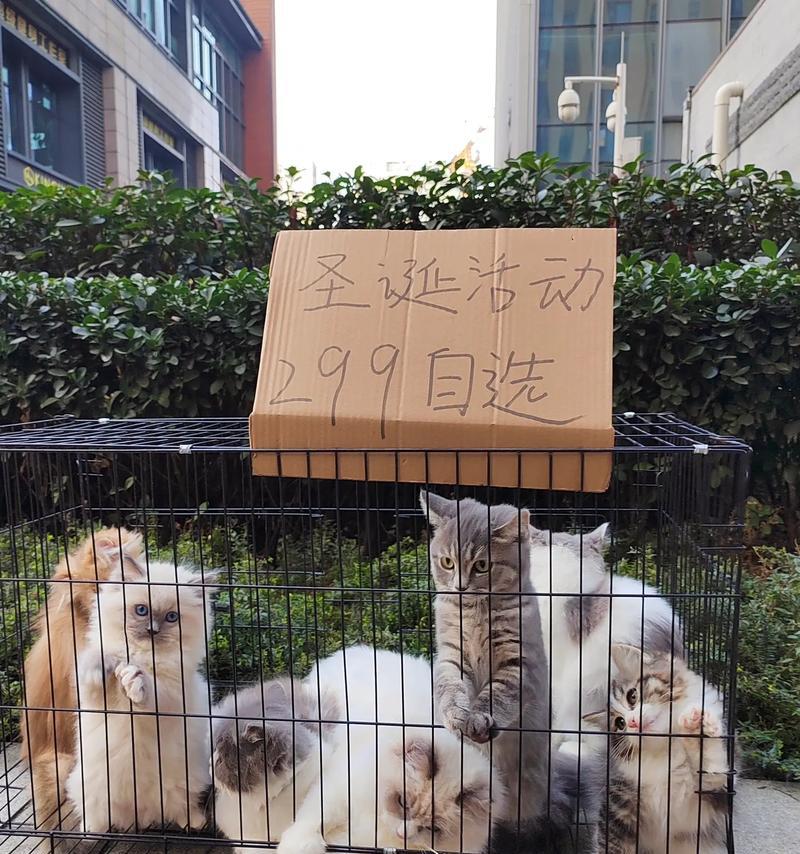 圣诞活动
299自选